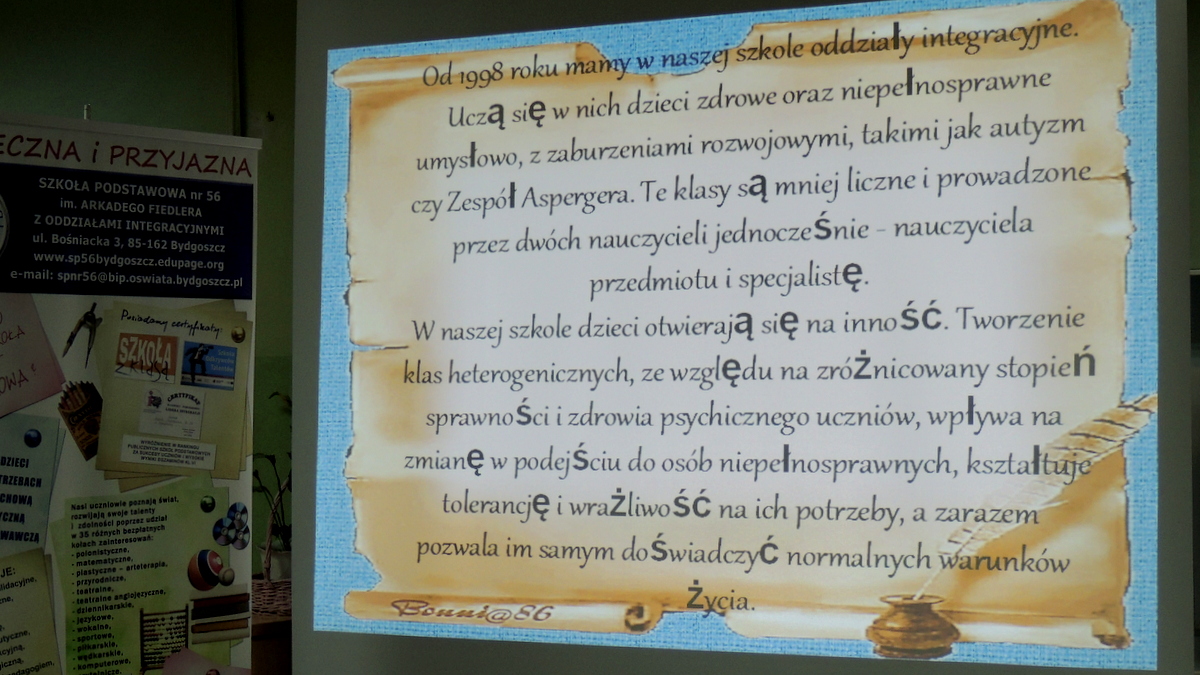 ECZNA i PRZYJAZNA
SZKOŁA PODSTAWOWA nr 56
im. ARKADEGO FIEDLERA
Z ODDZIAŁAMI INTEGRACYJNYMI
ul. Bośniacka 3, 85-162 Bydgoszcz
www.sp56bydgoszcz.edupage.org
e-mail: spnr56@bip.oswiata.bydgoszcz.pl
Posiadamy certyfikaty:
SZKOŁA
Z KLASĄ
CERTYFIKAT
WYRÓŻNIENIE W RANKINGU
PUBLICZNYCH SZKÓŁ PODSTAWOWYCH
ZA SUKCESY UCZNIÓW I WYSOKIE
DZIECI
TRZEBACH
CHOWĄ
YCZNĄ
WAWCZĄ
Nasi uczniowie poznają świat,
rozwijają swoje talenty
i zdolności poprzez udział
w 35 różnych bezpłatnych
kołach zainteresowań:
- polonistyczne,
- matematyczne,
- plastyczne - arteterapia,
- przyrodnicze,
- teatralne,
- teatralne anglojęzyczne,
- dziennikarskie,
- językowe,
- wokalne,
- sportowe,
- piłkarskie,
- wędkarskie,
- komputerowe,
Od 1998 roku mamy w naszej szkole oddziały integracyjne.
Uczą się w nich dzieci zdrowe oraz niepełnosprawne
umysłowo, z zaburzeniami rozwojowymi, takimi jak autyzm
czy Zespół Aspergera. Te klasy są mniej liczne i prowadzone
przez dwóch nauczycieli jednocześnie - nauczyciela
przedmiotu i specjalistę.
W naszej szkole dzieci otwierają się na inność. Tworzenie
klas heterogenicznych, ze względu na zróżnicowany stopień
sprawności i zdrowia psychicznego uczniów, wpływa na
zmianę w podejściu do osób niepełnosprawnych, kształtuje
tolerancję i wrażliwość na ich potrzeby, a zarazem
pozwala im samym doświadczyć normalnych warunków
życia.
Bonni@86